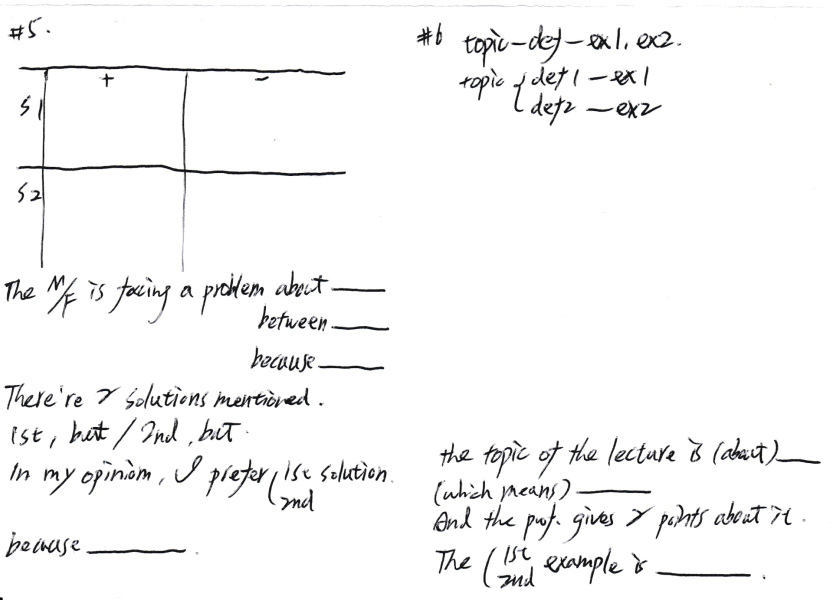 #5.
+ -
S1
S2
The M/F is facing a problem about ____
between ____
because ____
There're 2 solutions mentioned.
1st, but / 2nd, but.
In my opinion, I prefer ( 1st solution.
2nd
because ____.
#6 topic-def-ex1, ex2.
topic { def1 - ex1
def2 - ex2
the topic of the lecture is (about) ____
(which means) ____
And the prof. gives 2 points about it.
The ( 1st example is ____.
2nd